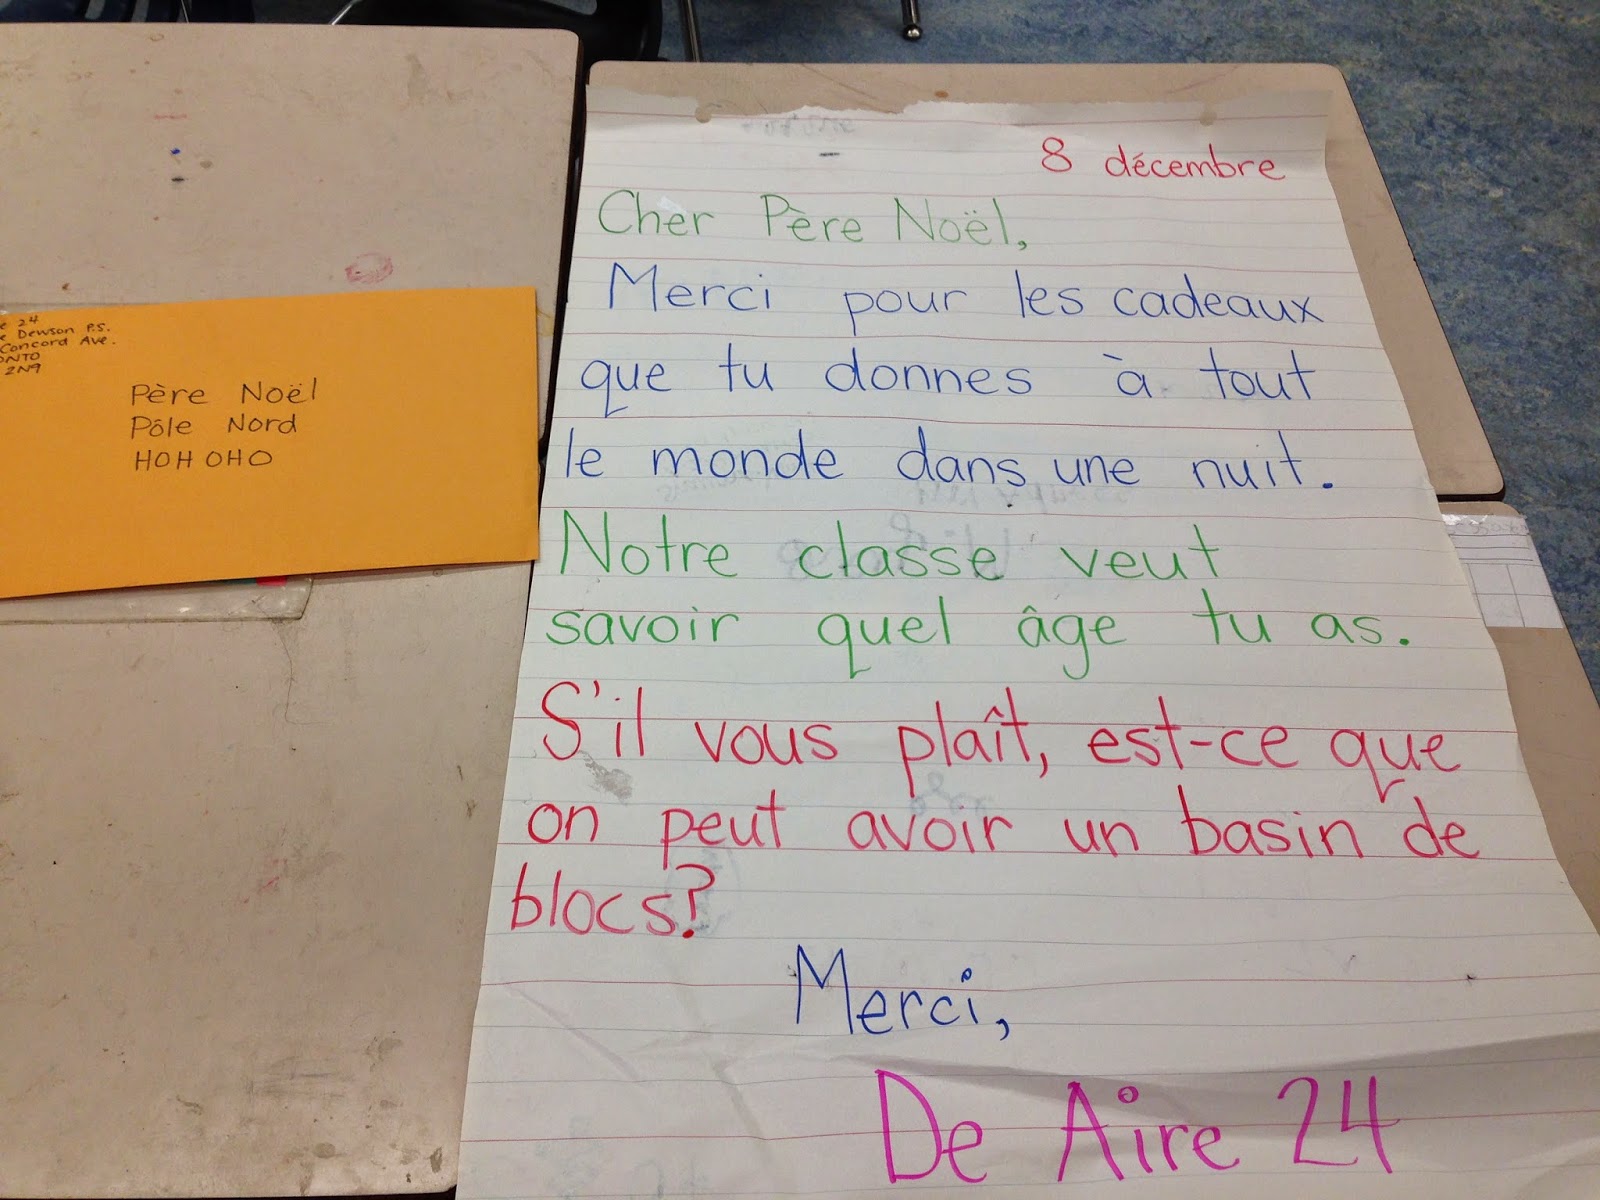 24
Dewson P.S.
Concord Ave.
2N9
Père Noël
Pôle Nord
HOH OHO
8 décembre
Cher Père Noël,
Merci pour les cadeaux
que tu donnes à tout
le monde dans une nuit.
Notre classe veut
savoir quel âge tu as.
S'il vous plaît, est-ce que
on peut avoir un basin de
blocs?
Merci,
De Aire 24